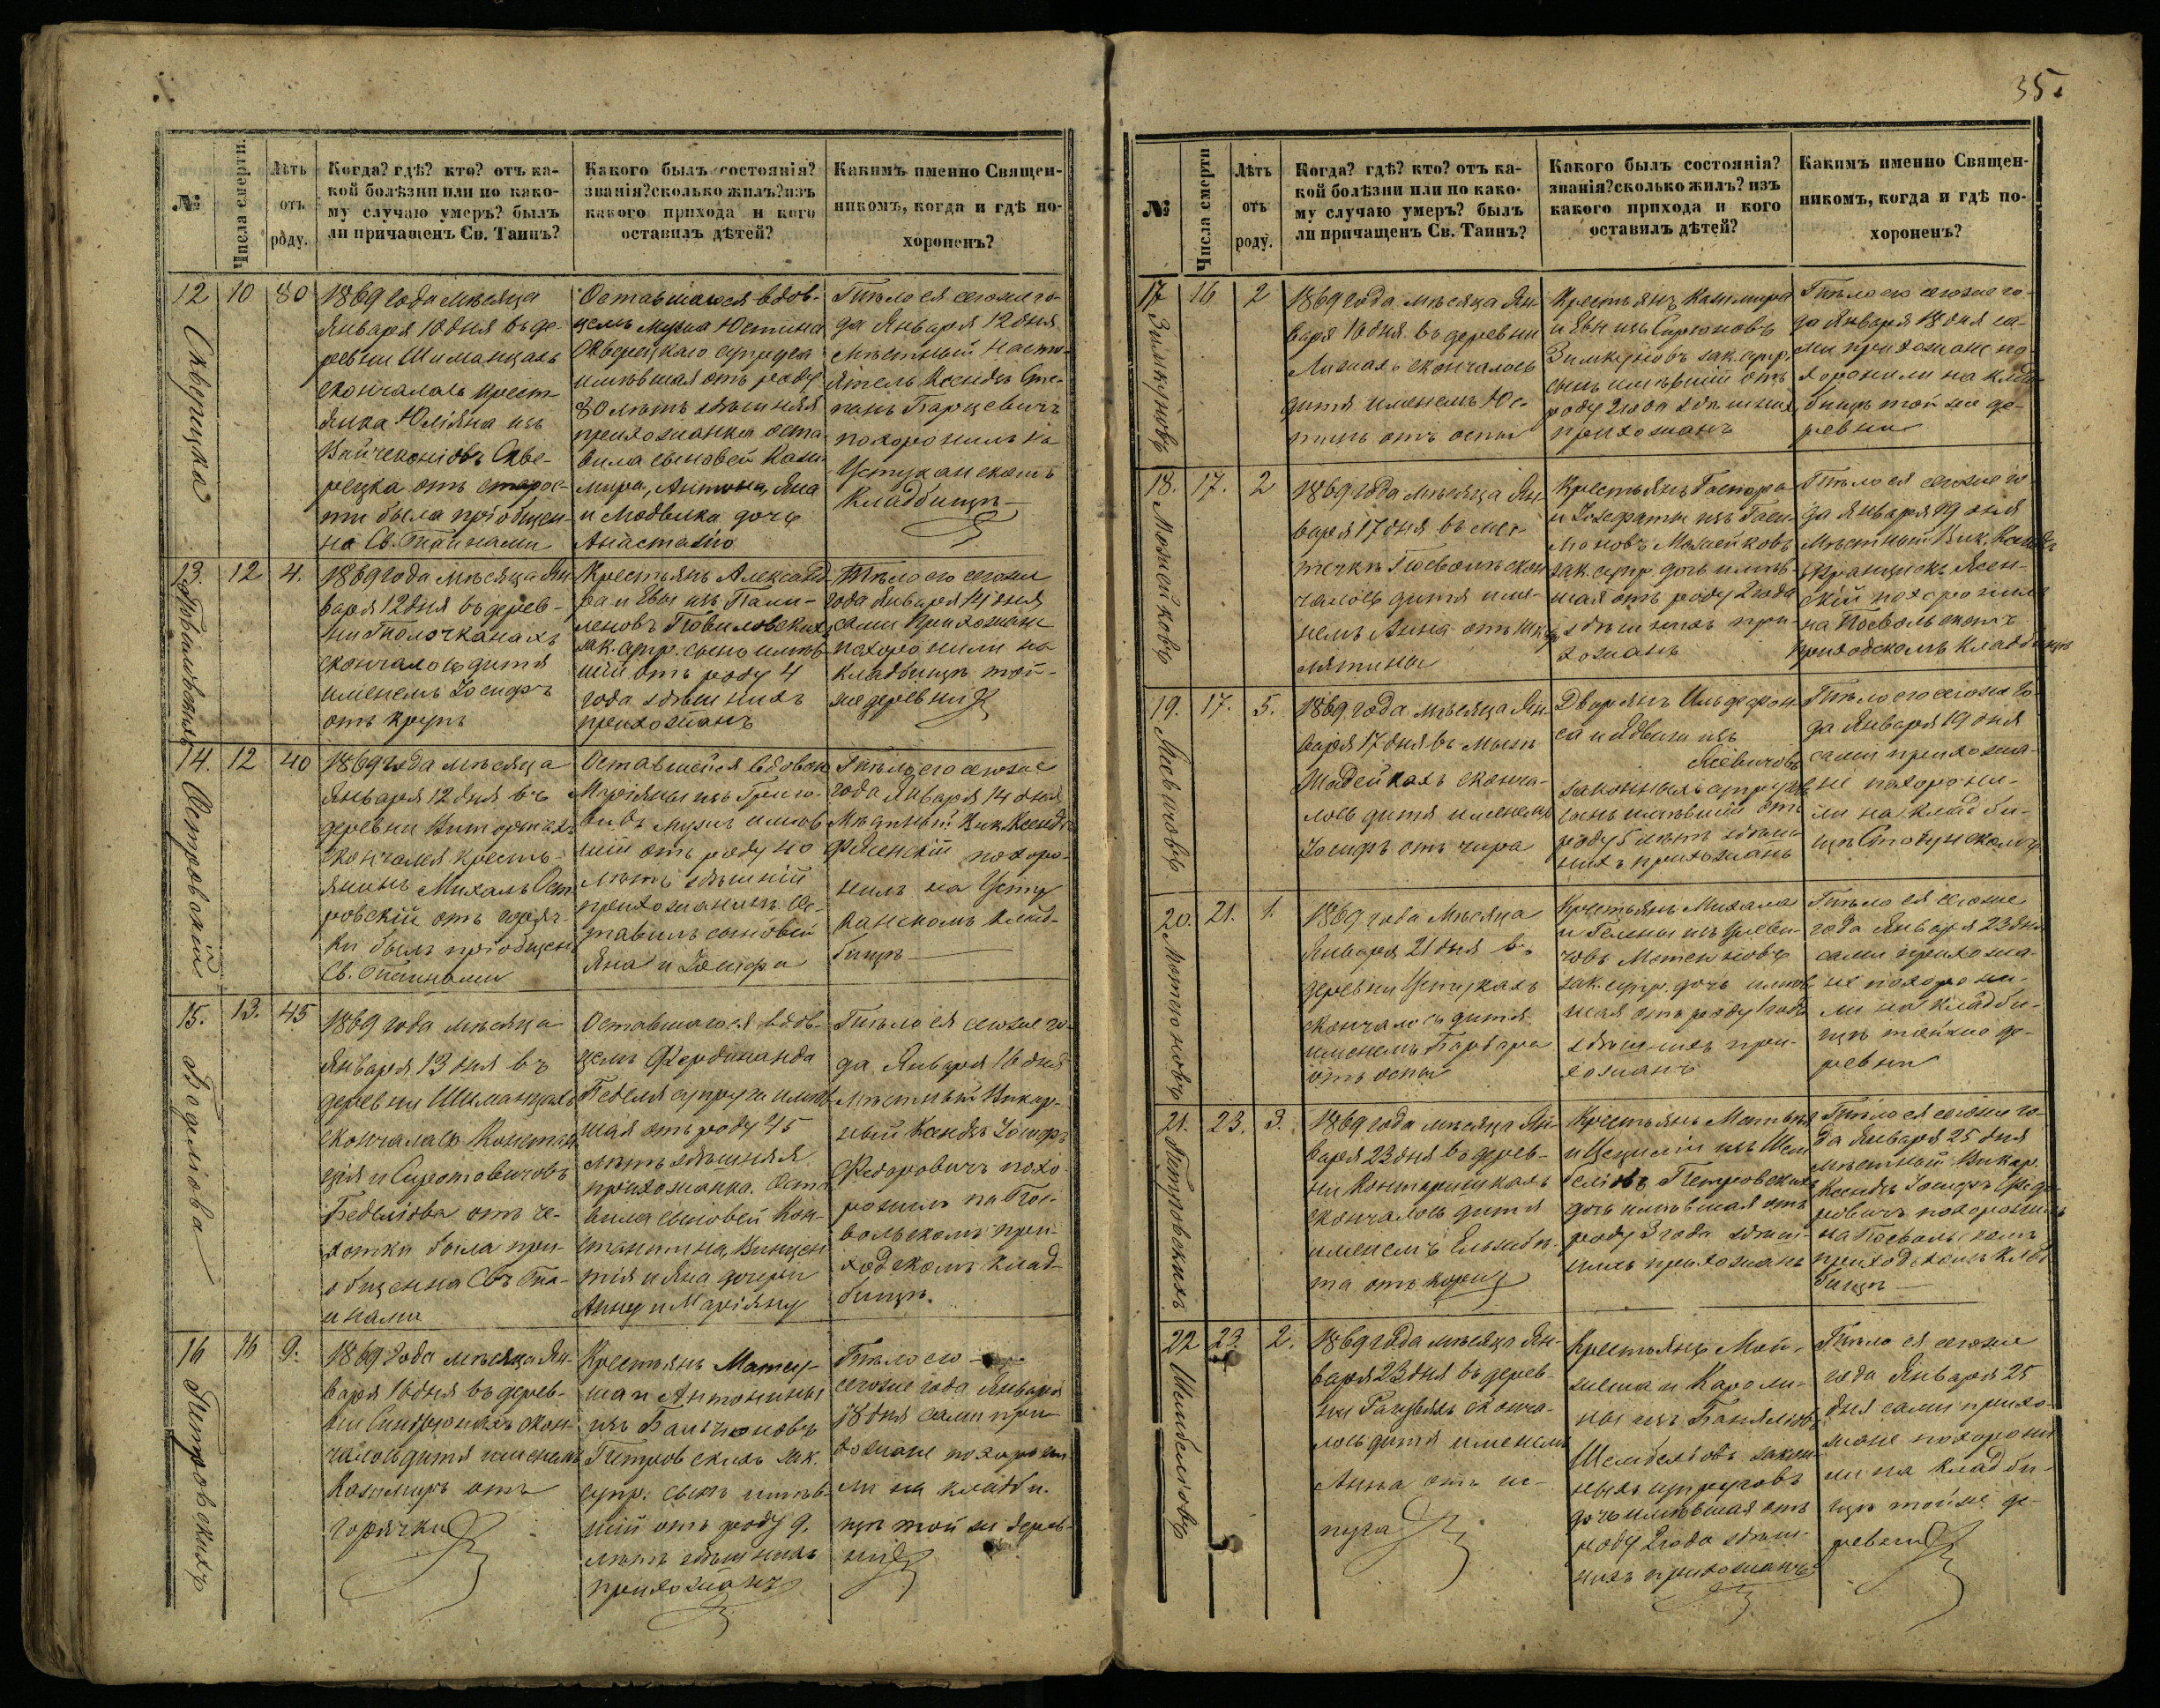 35.
№
Числа смерти.
Лѣтъ
отъ
роду.
Когда? гдѣ? кто? отъ ка-
кой болѣзни или по како-
му случаю умеръ? былъ
ли причащенъ Св. Таинъ?
Какого былъ состоянія?
званія? сколько жилъ? изъ
какого прихода и кого
оставилъ дѣтей?
Какимъ именно Священ-
никомъ, когда и гдѣ по-
хороненъ?
12
Скверецка
10
80
1869 года мѣсяца
Января 10 дня въ де-
ревни Шиманцахъ
скончалась крест-
янка Юліяна изъ
Скве-
рецка отъ старос-
ти была пріобщен-
на Св. Тайнами
Оставшагося вдов-
цемъ мужа Юстина
Скверецкаго супруга
имѣвшая отъ роду
80 лѣтъ здѣшняя
прихожанка оста-
вила сыновей Кази-
мира, Антона, Яна
и Людвика дочь
Анастазію
Тѣло ея сегоже го-
да Января 12 дня
Мѣстный Насто-
ятель Ксендзъ Сте-
панъ Барцевичъ
похоронилъ на
Устуканскомъ
Кладбищѣ
13.
12
4.
1869 года мѣсяца Ян-
варя 12 дня въ дерев-
ни Толочканахъ
скончалось дитя
именемъ Іосифъ
отъ крупъ
Крестьянъ Александ-
ра и Евы изъ Пали-
леновъ Повиловскихъ
зак. супр. сынъ имѣв-
шій отъ роду 4
года здѣшнихъ
прихожанъ
Тѣло его сегоже
года Января 14 дня
сами прихожане
похоронили на
кладбищѣ той-
же деревни
14.
Островскій
12
40
1869 года мѣсяца
Января 12 дня въ
деревни
скончался кресть-
янинъ Михалъ Ост-
ровскій отъ горяч-
ки былъ пріобщенъ
Св. Тайнами
Оставшейся вдовою
Маріяны изъ Григо-
вичъ мужъ имѣв-
шій отъ роду 40
лѣтъ здѣшній
прихожанинъ Ос-
тавилъ сыновей
Яна и Іосифа
Тѣло его сегоже
года Января 14 дня
Мѣстный Вик. Ксендзъ
Ф. Ясенскій похоро-
нилъ на Усту
канскомъ клад-
бищѣ
15.
Бедліова
13.
45
1869 года мѣсяца
Января 13 дня въ
деревни Шиманцахъ
скончалась Констан
ція и Сиротовичовъ
Бедліова отъ че-
хотки была при-
общенна Св. Тай-
нами
Оставшагося вдов-
цемъ Фердинанда
Беделя супруга имѣв-
шая отъ роду 45
лѣтъ здѣшняя
прихожанка. Оста
вила сыновей Кон-
стантина, Винцен
тія и Яна дочери
Анну и Маріяну
Тѣло ея сегоже го-
да Января 16 дня
мѣстный Викар-
ный Ксендзъ Іосифъ
Федоровичъ похо-
ронилъ на Пос-
вольскомъ при-
ходскомъ клад-
бищѣ.
16
Петровскихъ
16
9.
1869 года мѣсяца Ян-
варя 16 дня въ дерев-
ни скон-
чалось дитя именемъ
Казимиръ отъ
горячки
Крестьянъ Матеу-
ша и Антонины
изъ Бальчюновъ
Петровскихъ зак.
супр. сынъ имѣв-
шій отъ роду 9.
лѣтъ здѣшнихъ
прихожанъ
Тѣло его
сегоже года Января
18 дня сами при-
хожане похорони
ли на кладби-
щѣ той же дерев-
ни
№
Числа смерти
Лѣтъ
отъ
роду.
Когда? гдѣ? кто? отъ ка-
кой болѣзни или по како-
му случаю умеръ? былъ
ли причащенъ Св. Таинъ?
Какого былъ состоянія?
званія? сколько жилъ? изъ
какого прихода и кого
оставилъ дѣтей?
Какимъ именно Священ-
никомъ, когда и гдѣ по-
хороненъ?
17
Зимкуновъ
16
2
1869 года мѣсяца Ян-
варя 16 дня въ деревни
скончалось
дитя именемъ Юс-
тинъ отъ оспы
Крестьянъ Казимира
и Евы изъ
Зимкуновъ зак. супр.
сынъ имѣвшій отъ
роду 2 года здѣшних
прихожанъ
Тѣло его сегоже го-
да Января 18 дня са-
ми прихожане по-
хоронили на клад-
бищѣ той же де-
ревни
18.
Можейковъ
17.
2
1869 года мѣсяца Ян-
варя 17 дня въ мѣс-
течкѣ Посволѣ скон
чалось дитя име-
немъ Анна отъ шкар
лятины
Крестьянъ Гаспара
и Іозефаты изъ Гаси-
люновъ Можейковъ
зак. супр. дочь имѣв-
шая отъ роду 2 года
здѣшнихъ при-
хожанъ
Тѣло ея сегоже го-
да Января 19 дня
Мѣстный Вик. Ксендзъ
Францискъ Ясен-
скій похоронилъ
на Посвольскомъ
приходскомъ кладбищѣ
19.
17.
5.
1869 года мѣсяца Ян-
варя 17 дня въ мызѣ
Шадейкахъ сконча-
лось дитя именемъ
Іосифъ отъ чира
Дворянъ Ильдефон-
са и Ядвиги изъ
законныхъ супруговъ
сынъ имѣвшій отъ
роду 5 лѣтъ здѣш-
нихъ прихожанъ
Тѣло его сегоже го-
да Января 19 дня
сами прихожа-
не похорони-
ли на кладби-
щѣ
20.
Мотеюновъ
21.
1.
1869 года Мѣсяца
Января 21 дня въ
деревни Устукахъ
скончалось дитя
именемъ Барбара
отъ оспы
Крестьянъ Михала
и Гелены изъ
човъ Мотеюновъ
зак. супр. дочь имѣв
шая отъ роду 1 годъ
здѣшнихъ при-
хожанъ
Тѣло ея сегоже
года Января 23 дня
сами прихожа-
не похорони-
ли на кладби-
щѣ тойже де-
ревни
21.
Петровскихъ
23.
3.
1869 года мѣсяца Ян-
варя 23 дня въ дерев-
ни
скончалось дитя
именемъ Ельжбѣ-
та отъ кори
Крестьянъ Матвѣя
и Цециліи изъ Шем
беліовъ Петровскихъ
дочь имѣвшая отъ
роду 3 года здѣш-
нихъ прихожанъ
Тѣло ея сегоже го-
да Января 25 дня
мѣстный Викар.
Ксендзъ Іосифъ Федо-
ровичъ похоронилъ
на Посвольскомъ
приходскомъ клад
бищѣ
22
Шембеліовъ
23.
2.
1869 года мѣсяца Ян-
варя 23 дня въ дерев-
ни сконча-
лось дитя именемъ
Анна отъ ис-
пуга
Крестьянъ Мой-
жеша и Кароли-
ны изъ
Шембеліовъ закон-
ныхъ супруговъ
дочь имѣвшая отъ
роду 2 года здѣш-
нихъ прихожанъ
Тѣло ея сегоже
года Января 25
дня сами прихо-
жане похорони
ли на кладби-
щѣ тойже де-
ревни